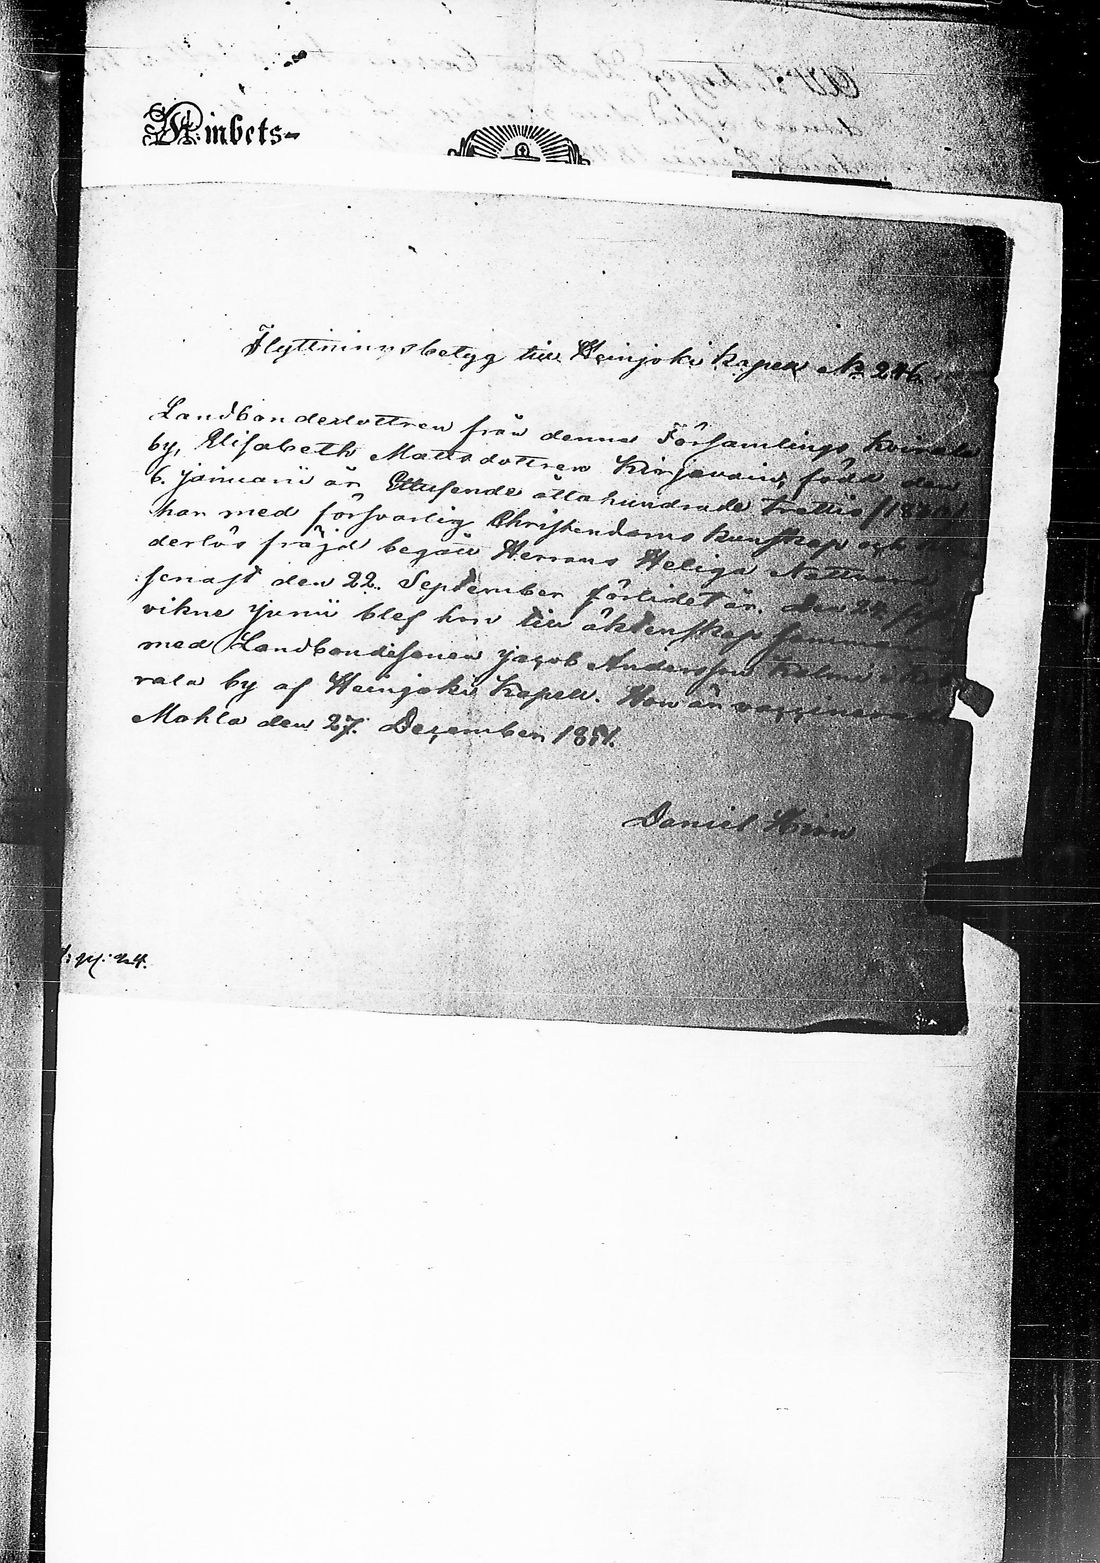 Ambets-
Flyttningsbetyg till Heinjoki Kapell No 246.
Landbondedottren från denna Församlings Koirala
by, Elisabeth Mattsdottren Kirjavain, född den
6. januarii år Ettusende åttahundrade trettio /1830/
har med försvarlig Christendoms kunskap och
derlös fräjd begått Herrans Heliga Nattvard
senast den 22. September förlidet år. Den 24.
vikne junii blef hon till äktenskap
med Landbondesonen Jacob Andersson i
rala by af Heinjoki Kapell. Hon är vaccinerad
Mohla den 27. December 1851.
Daniel Hirn